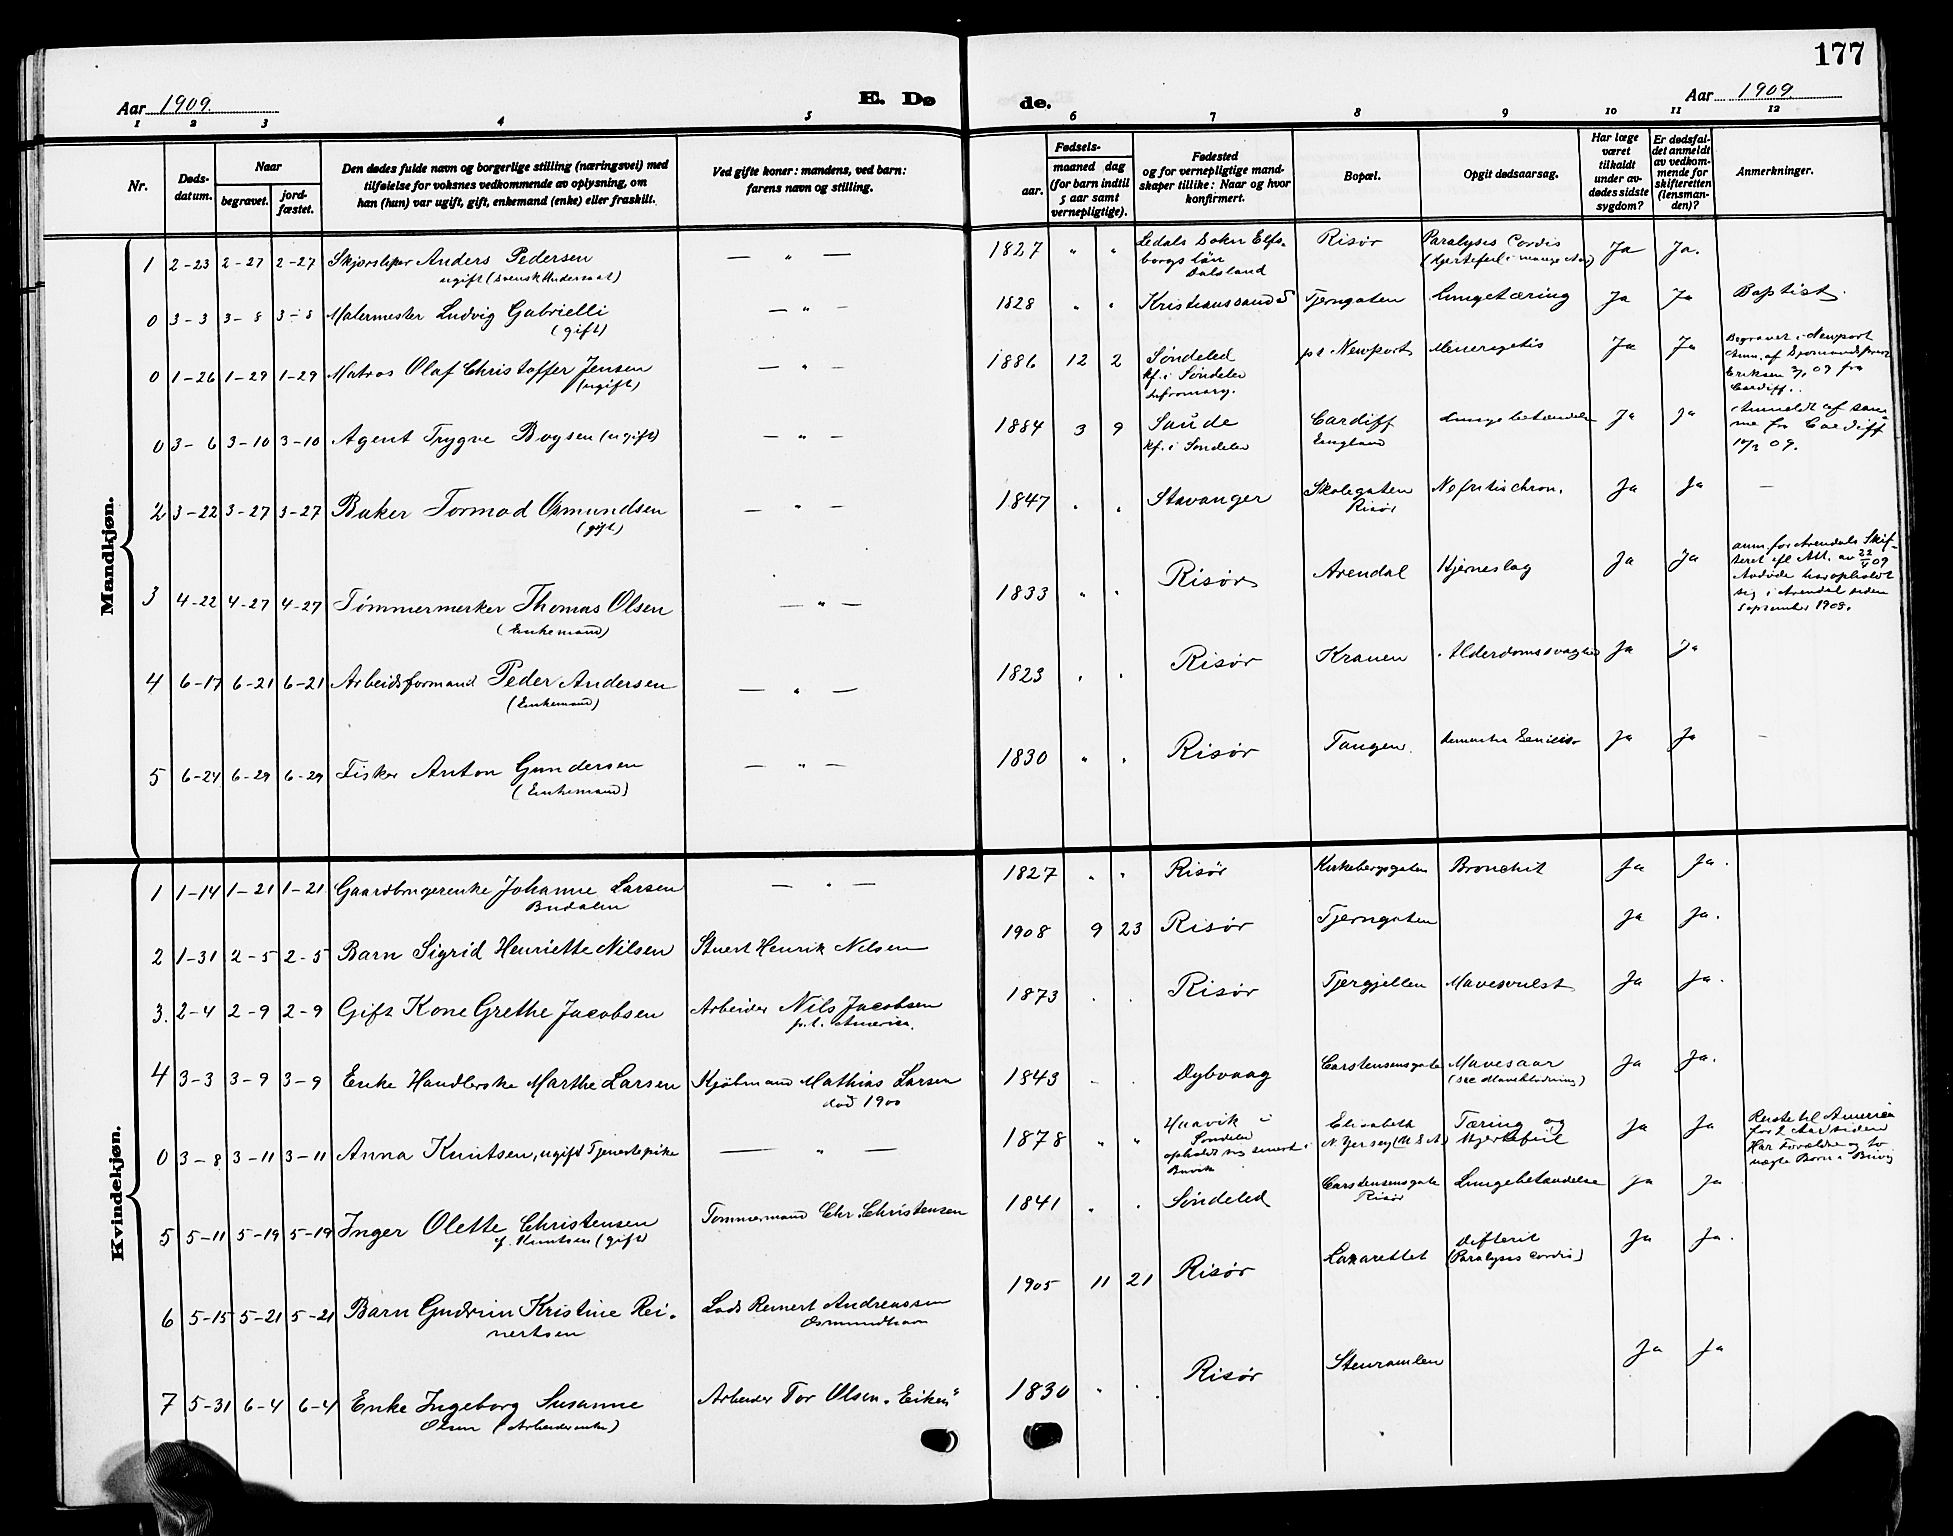 177
Aar 1909.
E. Dø
de.
Aar 1909
1 2 3 4 5 6 7 8 9 10 11 12
Nr.
Døds-
datum.
Naar
begravet.
jord-
fæstet.
Den dødes fulde navn og borgerlige stilling (næringsvei) med
tilføielse for voksnes vedkommende av oplysning, om
han (hun) var ugift, gift, enkemand (enke) eller fraskilt.
Ved gifte koner: mandens, ved barn:
farens navn og stilling.
Fødsels-
aar.
maaned dag
(for barn indtil
5 aar samt
vernepligtige).
Fødested
og for vernepligtige mand-
skaper tillike: Naar og hvor
konfirmert.
Bopæl.
Opgit dødsaarsag.
Har læge
været
tilkaldt
under av-
dødes sidste
sygdom?
Er dødsfal-
det anmeldt
av vedkom-
mende for
skifteretten
(lensman-
den)?
Anmerkninger.
Mandkjøn.
1 2-23 2-27 2-27 Anders Pedersen — " — 1827 " " Ledals Sokn Elfs- Risør Paralysis Cordis Ja Ja.
ugift (svensk Undersaat) borgs län (Hjertefeil i mange Aar)
Dalsland
0 3-3 3-8 3-8 Malermester Ludvig Gabrielli — " — 1828 " " Kristianssand S Tjerngaten Lungetæring Ja Ja Baptist.
(gift)
0 1-26 1-29 1-29 Matros Olaf Christoffer Jensen — " — 1886 12 2 Søndeled pt Newport Ja Ja Begravet i Newport
(ugift) kf. i Søndeled Anm. af Sjømandsprest
Eriksen 09 fra
Cardiff.
0 3-6 3-10 3-10 Agent Trygve Boysen (ugift) — " — 1884 3 9 Saude Cardiff Lungebetændelse Ja Ja Anmeldt af sam-
kf. i Søndeled England me fr Cardiff
09.
2 3-22 3-27 3-27 Baker Tormod Osmundsen — " — 1847 " " Stavanger Skolegaten Nefritis chron. Ja Ja —
(gift) Risør
3 4-22 4-27 4-27 Tømmermerker Thomas Olsen — " — 1833 " " Risør Arendal Hjerneslag Ja Ja anm. for Arendals Skif-
(Enkemand) teret ifl Att. av 22/5 09
Avdøde har opholdt
sig i Arendal siden
September 1908.
4 6-17 6-21 6-21 Arbeidsformand Peder Andersen — " — 1823 " " Risør Kranen Alderdomssvaghed Ja Ja
(Enkemand)
5 6-24 6-29 6-29 Fisker Anton Gundersen — " — 1830 " " Risør Tangen. Ja Ja —
(Enkemand)
Kvindekjøn.
1 1-14 1-21 1-21 Gaardbrugerenke Johanne Larsen — " — 1827 " " Risør Kirkebergsgaten Bronchit Ja Ja.
Budalen
2 1-31 2-5 2-5 Barn Sigrid Henriette Nilsen Stuert Henrik Nilsen 1908 9 23 Risør Tjerngaten Ja Ja.
3. 2-4 2-9 2-9 Gift Kone Grethe Jacobsen Arbeider Nils Jacobsen 1873 . . Risør Tjergjellen Mavesvulst Ja Ja.
p.t. America.
4 3-3 3-9 3-9 Enke Handlerske Marthe Larsen Kjøbmand Mathias Larsen 1843 - . Dybvaag Carstensensgate Mavesaar Ja Ja.
død 1900 (Maveblødning)
0 3-8 3-11 3-11 Anna Knutsen, ugift Tjenestepike — " — 1878 " " i Elisabeth Tæring og Ja Ja Reiste til America
Søndeled N. Jersey (U.S.A) Hjertefeil for 2 Aar siden
opholdt sig senest i Har Forældre og to
Buvik uægte Børn i Buvig
5 5-11 5-19 5-19 Inger Olette Christensen Tømmermand Chr. Christensen 1841 . . Søndeled Carstensensgate Lungebetændelse Ja Ja
f. Knutsen (gift) Risør
6 5-15 5-21 5-21 Barn Gudrun Kristine Rei- Lods Reinert Andreassen 1905 11 21 Risør Lazarettet Difterit Ja Ja.
nertsen (Paralysis cordis)
7 5-31 6-4 6-4 Enke Ingeborg Susanne Arbeider Tor Olsen „Eiken" 1830 . . Risør Stenramlen Ja Ja
Olsen (Arbeiderenke)